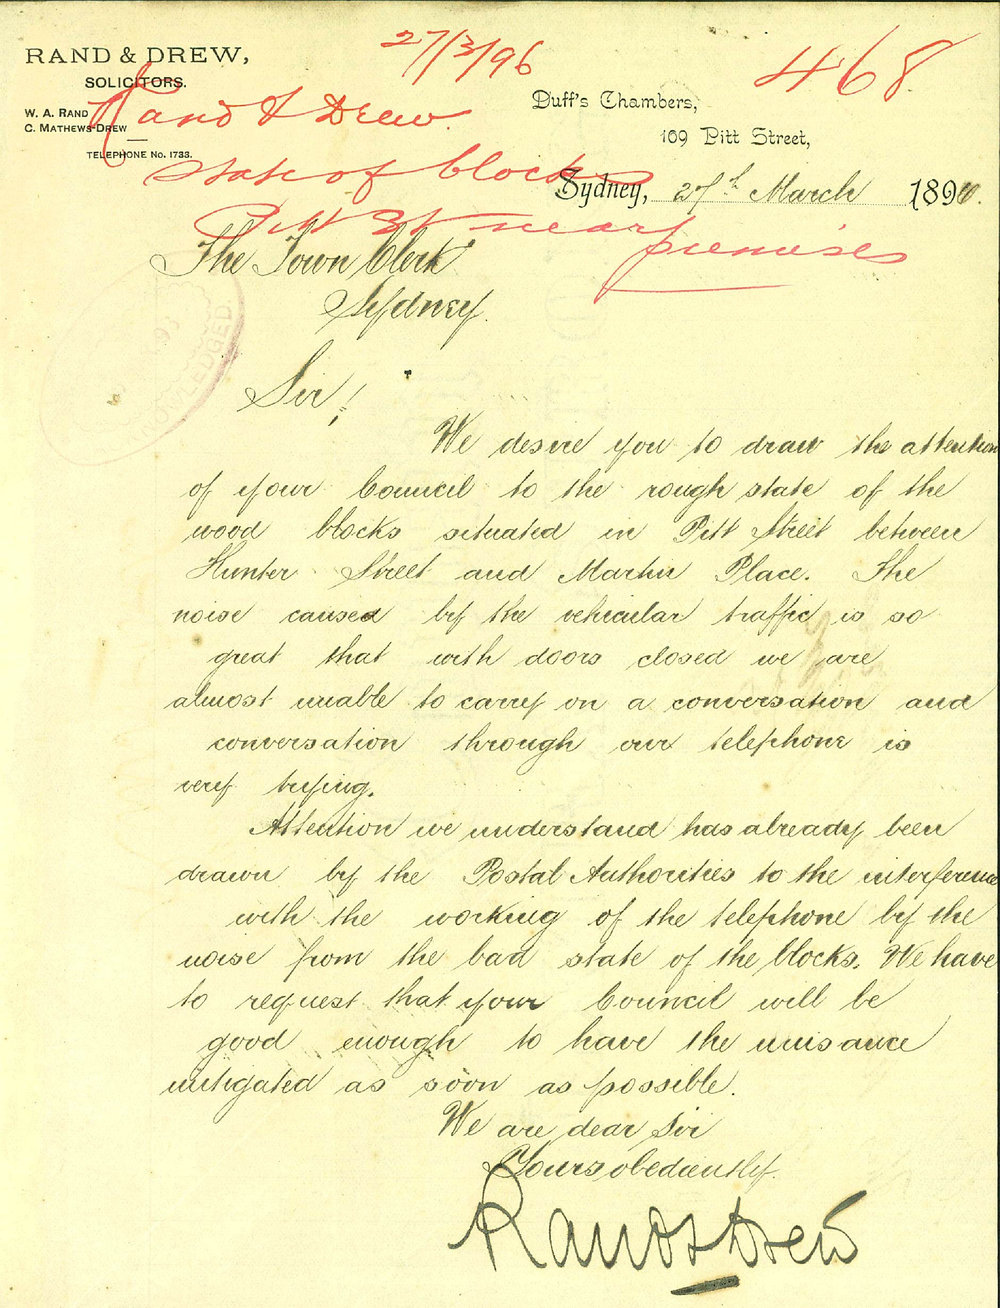 RAND & DREW,
SOLICITORS.
W. A. RAND
C. MATHEWS-DREW
TELEPHONE No. 1733.
27/3/96
468
Rand & Drew.
state of blocks
Pitt St near
premises
Duff's Chambers,
109 Pitt Street,
Sydney, 27th March 1896.
The Town Clerk
Sydney.
KNOWLEDGED.
Sir!
We desire you to draw the attention
of your Council to the rough state of the
wood blocks situated in Pitt Street between
Hunter Street and Martin Place. The
noise caused by the vehicular traffic is so
great that with doors closed we are
almost unable to carry on a conversation and
conversation through our telephone is
very trying.
Attention we understand has already been
drawn by the Postal Authorities to the interference
with the working of the telephone by the
noise from the bad state of the blocks. We have
to request that your Council will be
good enough to have the nuisance
mitigated as soon as possible.
We are dear Sir
Yours obediently.
Rand & Drew